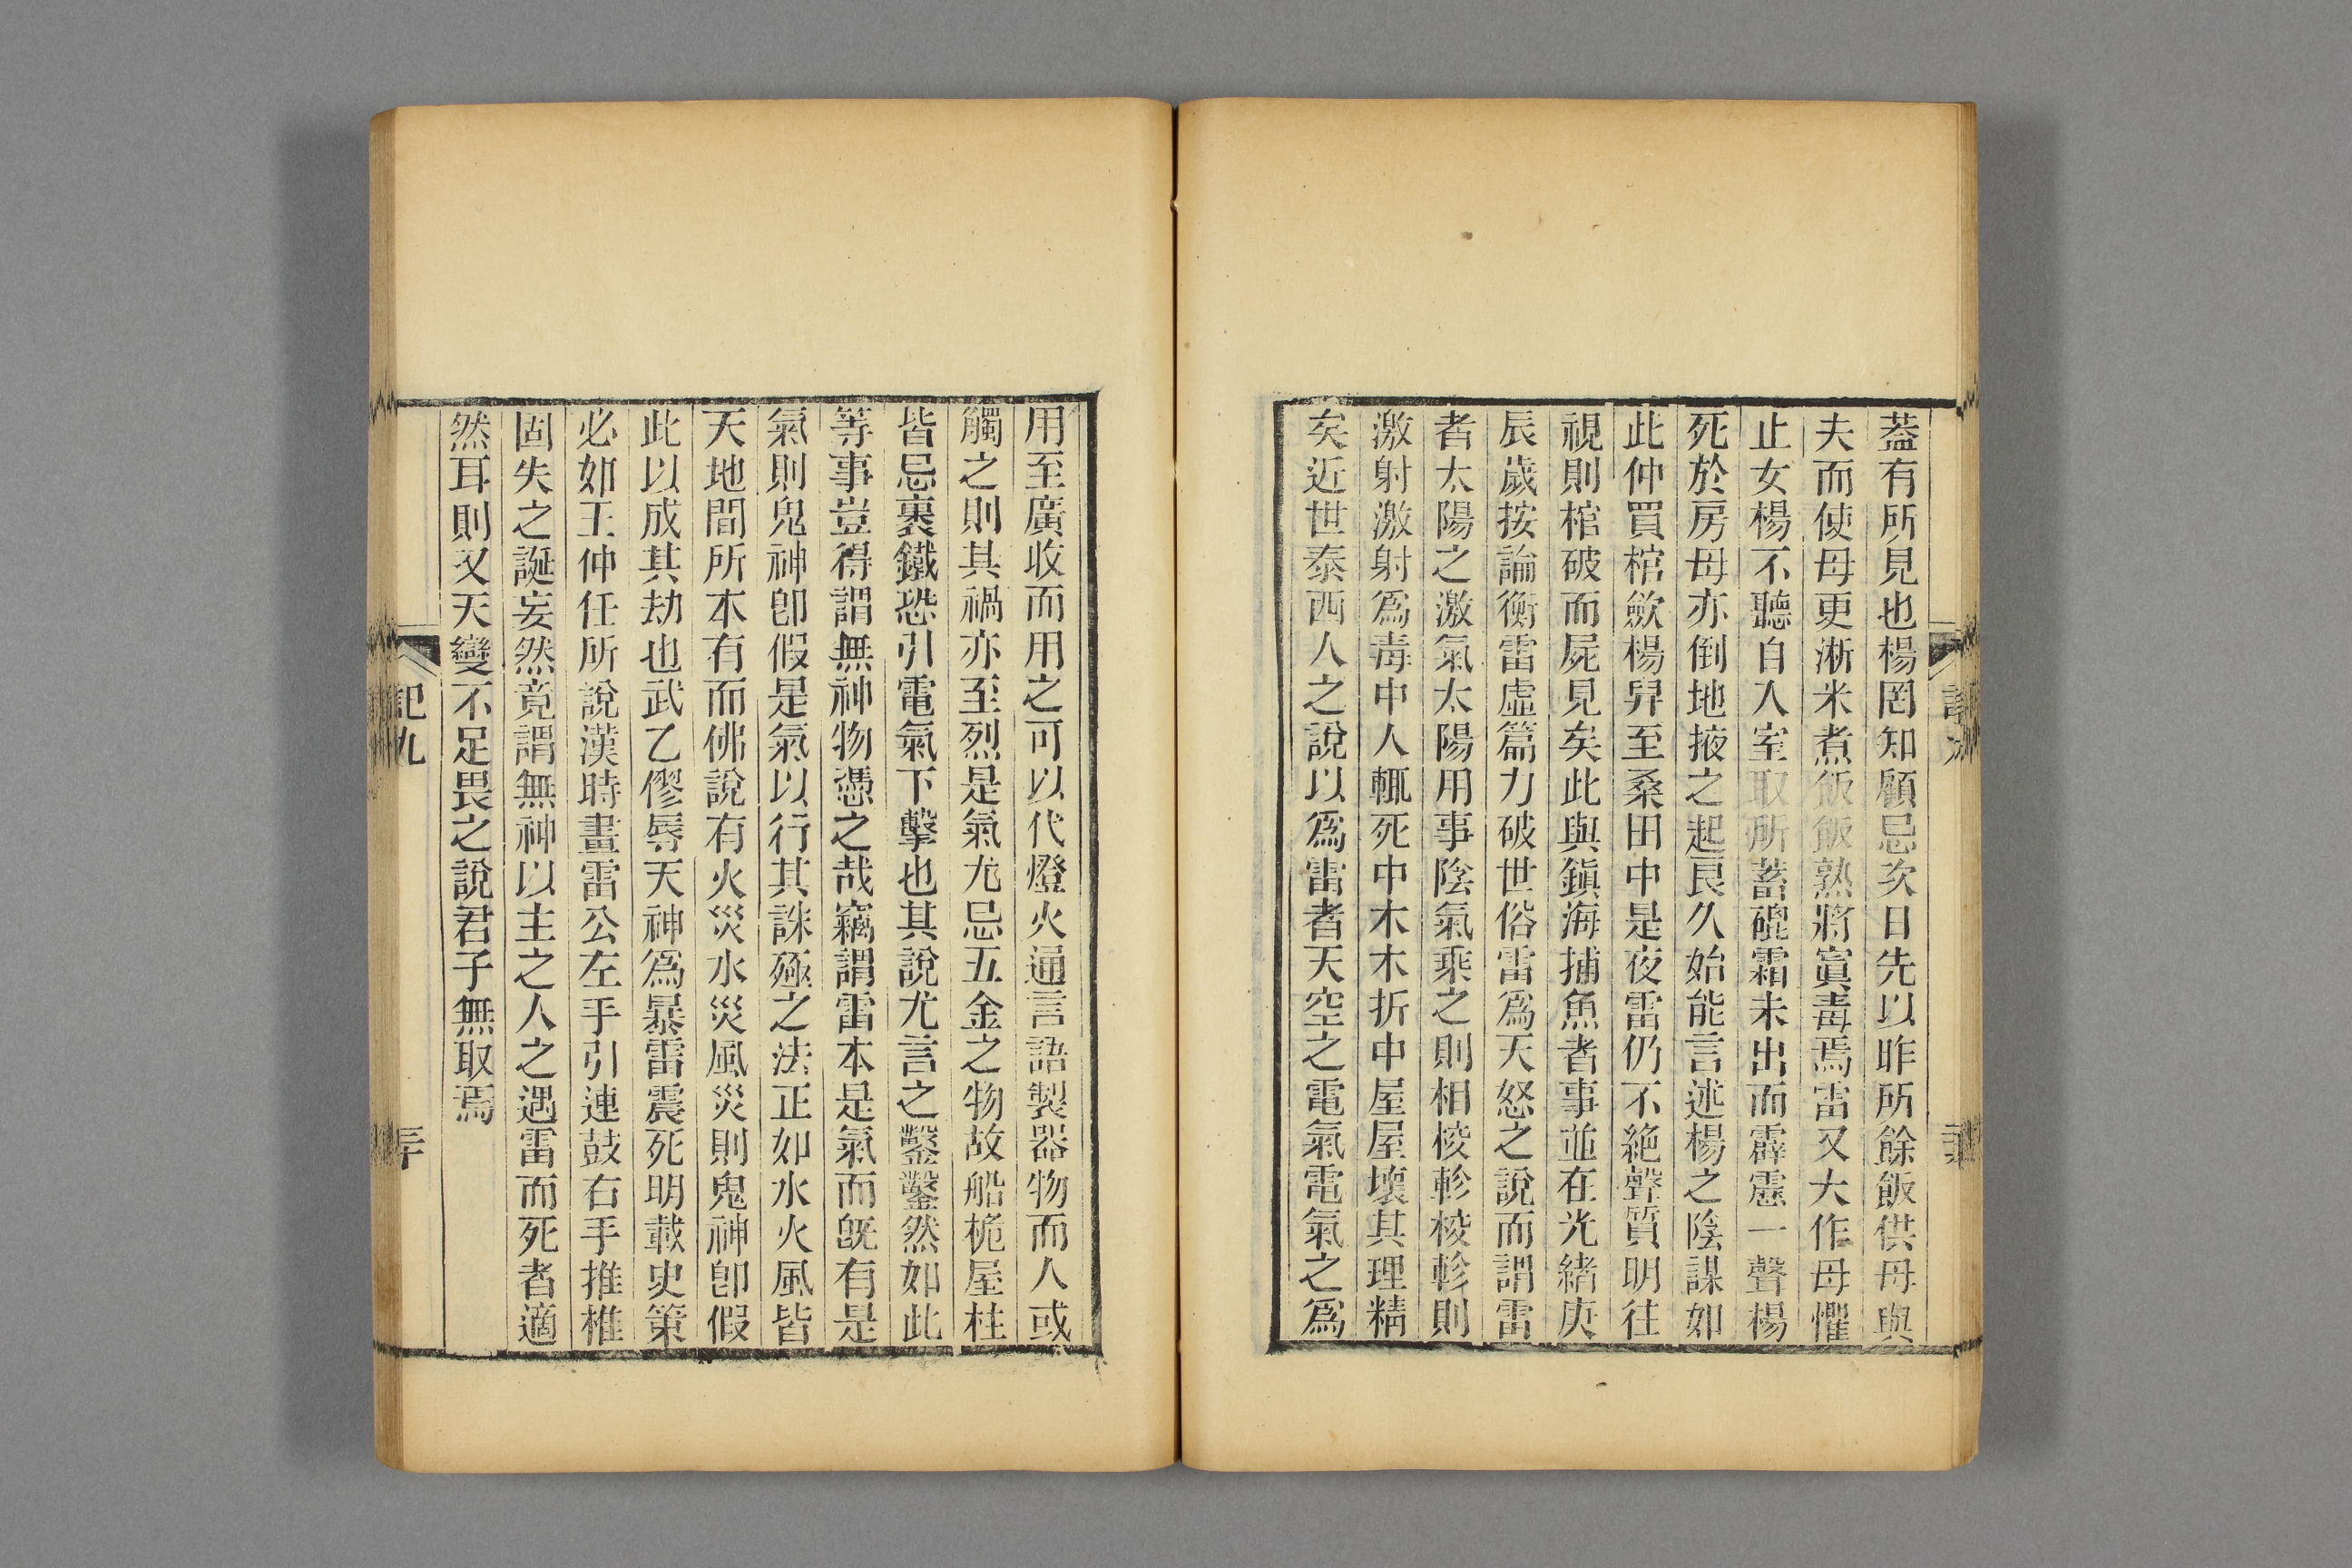 蓋有所見也楊罔知顧忌次日先以昨所餘飯供母與
夫而使母更淅米煮飯飯熟將寘毒焉雷又大作母懼
止女楊不聽自入室取所蓄磇霜未出而霹靂一聲楊
死於房母亦倒地掖之起良久始能言述楊之陰謀如
此仲買棺歛楊舁至桑田中是夜雷仍不絶聲質明往
視則棺破而屍見矣此與鎭海捕魚者事並在光緒庚
辰歲按論衡雷虛篇力破世俗雷爲天怒之說而謂雷
者太陽之激氣太陽用事陰氣乘之則相棱軫棱軫則
激射激射爲毒中人輒死中木木折中屋屋壞其理精
矣近世泰西人之說以爲雷者天空之電氣電氣之爲
用至廣收而用之可以代燈火通言語製器物而人或
觸之則其禍亦至烈是氣尤忌五金之物故船桅屋柱
皆忌裹鐵恐引電氣下擊也其說尤言之鑿鑿然如此
等事豈得謂無神物憑之哉竊謂雷本是氣而旣有是
氣則鬼神卽假是氣以行其誅殛之法正如水火風皆
天地間所本有而佛說有火災水災風災則鬼神卽假
此以成其劫也武乙僇辱天神爲暴雷震死明載史策
必如王仲任所說漢時畫雷公左手引連鼓右手推椎
固失之誕妄然竟謂無神以主之人之遇雷而死者適
然耳則又天變不足畏之說君子無取焉
記九
三十